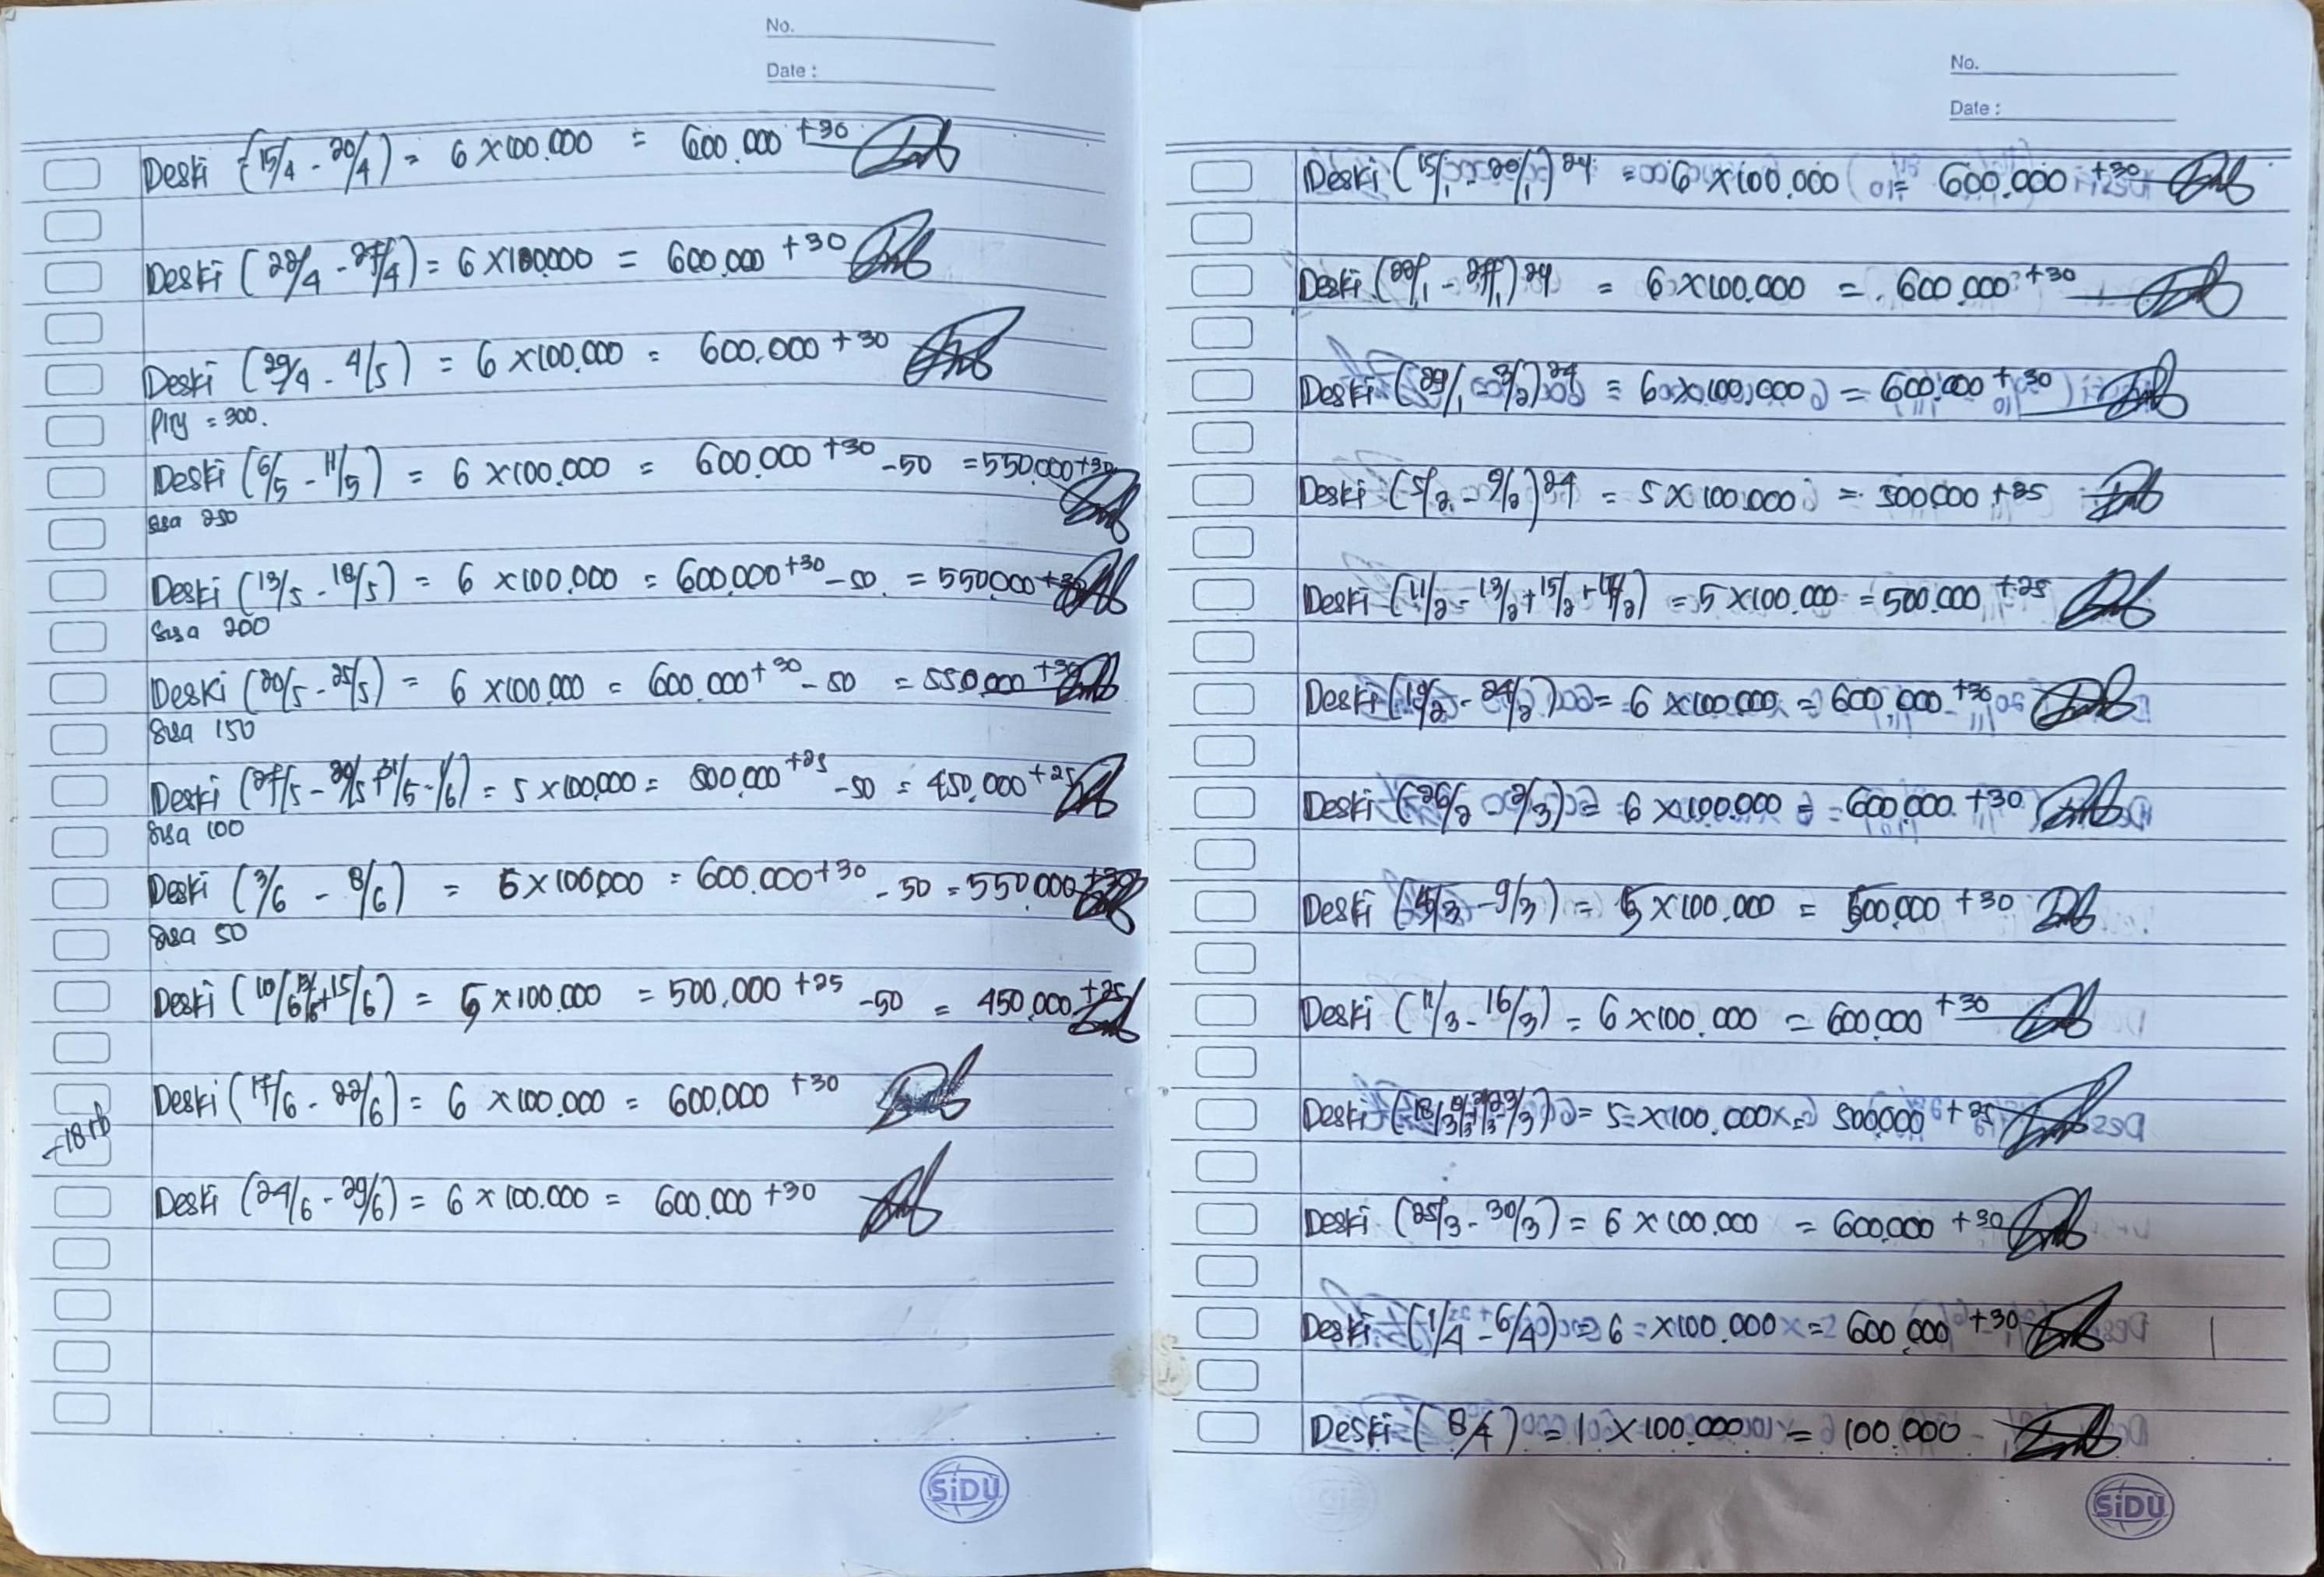 No.
Date :
Deski (15/4 - 20/4) = 6 x 100.000 = 600.000 +30
Deski (22/4 - 27/4) = 6 x 100.000 = 600.000 +30
Deski (29/4 - 4/5) = 6 x 100.000 = 600.000 +30
= 300.
Deski (6/5 - 11/5) = 6 x 100.000 = 600.000 +30 -50 = 550.000 +30
sisa 250
Deski (13/5 - 18/5) = 6 x 100.000 = 600.000 +30 -50 = 550.000 +30
Sisa 200
Deski (20/5 - 25/5) = 6 x 100.000 = 600.000 +30 -50 = 550.000 +30
Sisa 150
Deski (27/5 - 29/5 + 31/5 - 1/6) = 5 x 100.000 = 500.000 +25 -50 = 450.000 +25
Sisa 100
Deski (3/6 - 8/6) = 6 x 100.000 = 600.000 +30 -50 = 550.000 +30
Sisa 50
Deski (10/6 + 15/6) = 5 x 100.000 = 500.000 +25 -50 = 450.000 +25
Deski (17/6 - 22/6) = 6 x 100.000 = 600.000 +30
-18 rb
Deski (24/6 - 29/6) = 6 x 100.000 = 600.000 +30
SiDU
No.
Date :
Deski (15/1 - 20/1) 24 = 6 x 100.000 = 600.000 +30
Deski (22/1 - 27/1) 24 = 6 x 100.000 = 600.000 +30
Deski (29/1 - 3/2) 24 = 6 x 100.000 = 600.000 +30
Deski (5/2 - 9/2) 24 = 5 x 100.000 = 500.000 +25
Deski (11/2 - 13/2 + 15/2 + 17/2) = 5 x 100.000 = 500.000 +25
Deski (19/2 - 24/2) = 6 x 100.000 = 600.000 +30
Deski (26/2 - 2/3) = 6 x 100.000 = 600.000 +30
Deski (4/3 - 9/3) = 5 x 100.000 = 500.000 +30
Deski (11/3 - 16/3) = 6 x 100.000 = 600.000 +30
Deski (18/3 23/3) = 5 x 100.000 = 500.000 +25
Deski (25/3 - 30/3) = 6 x 100.000 = 600.000 +30
Deski (1/4 - 6/4) = 6 x 100.000 = 600.000 +30
Deski (8/4) = 1 x 100.000 = 100.000
SiDU